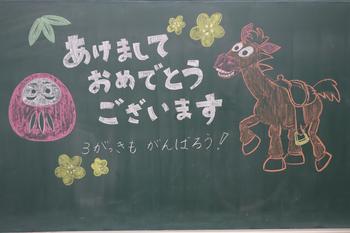 あけまして
おめでとう
ございます
3がっきも がんばろう!